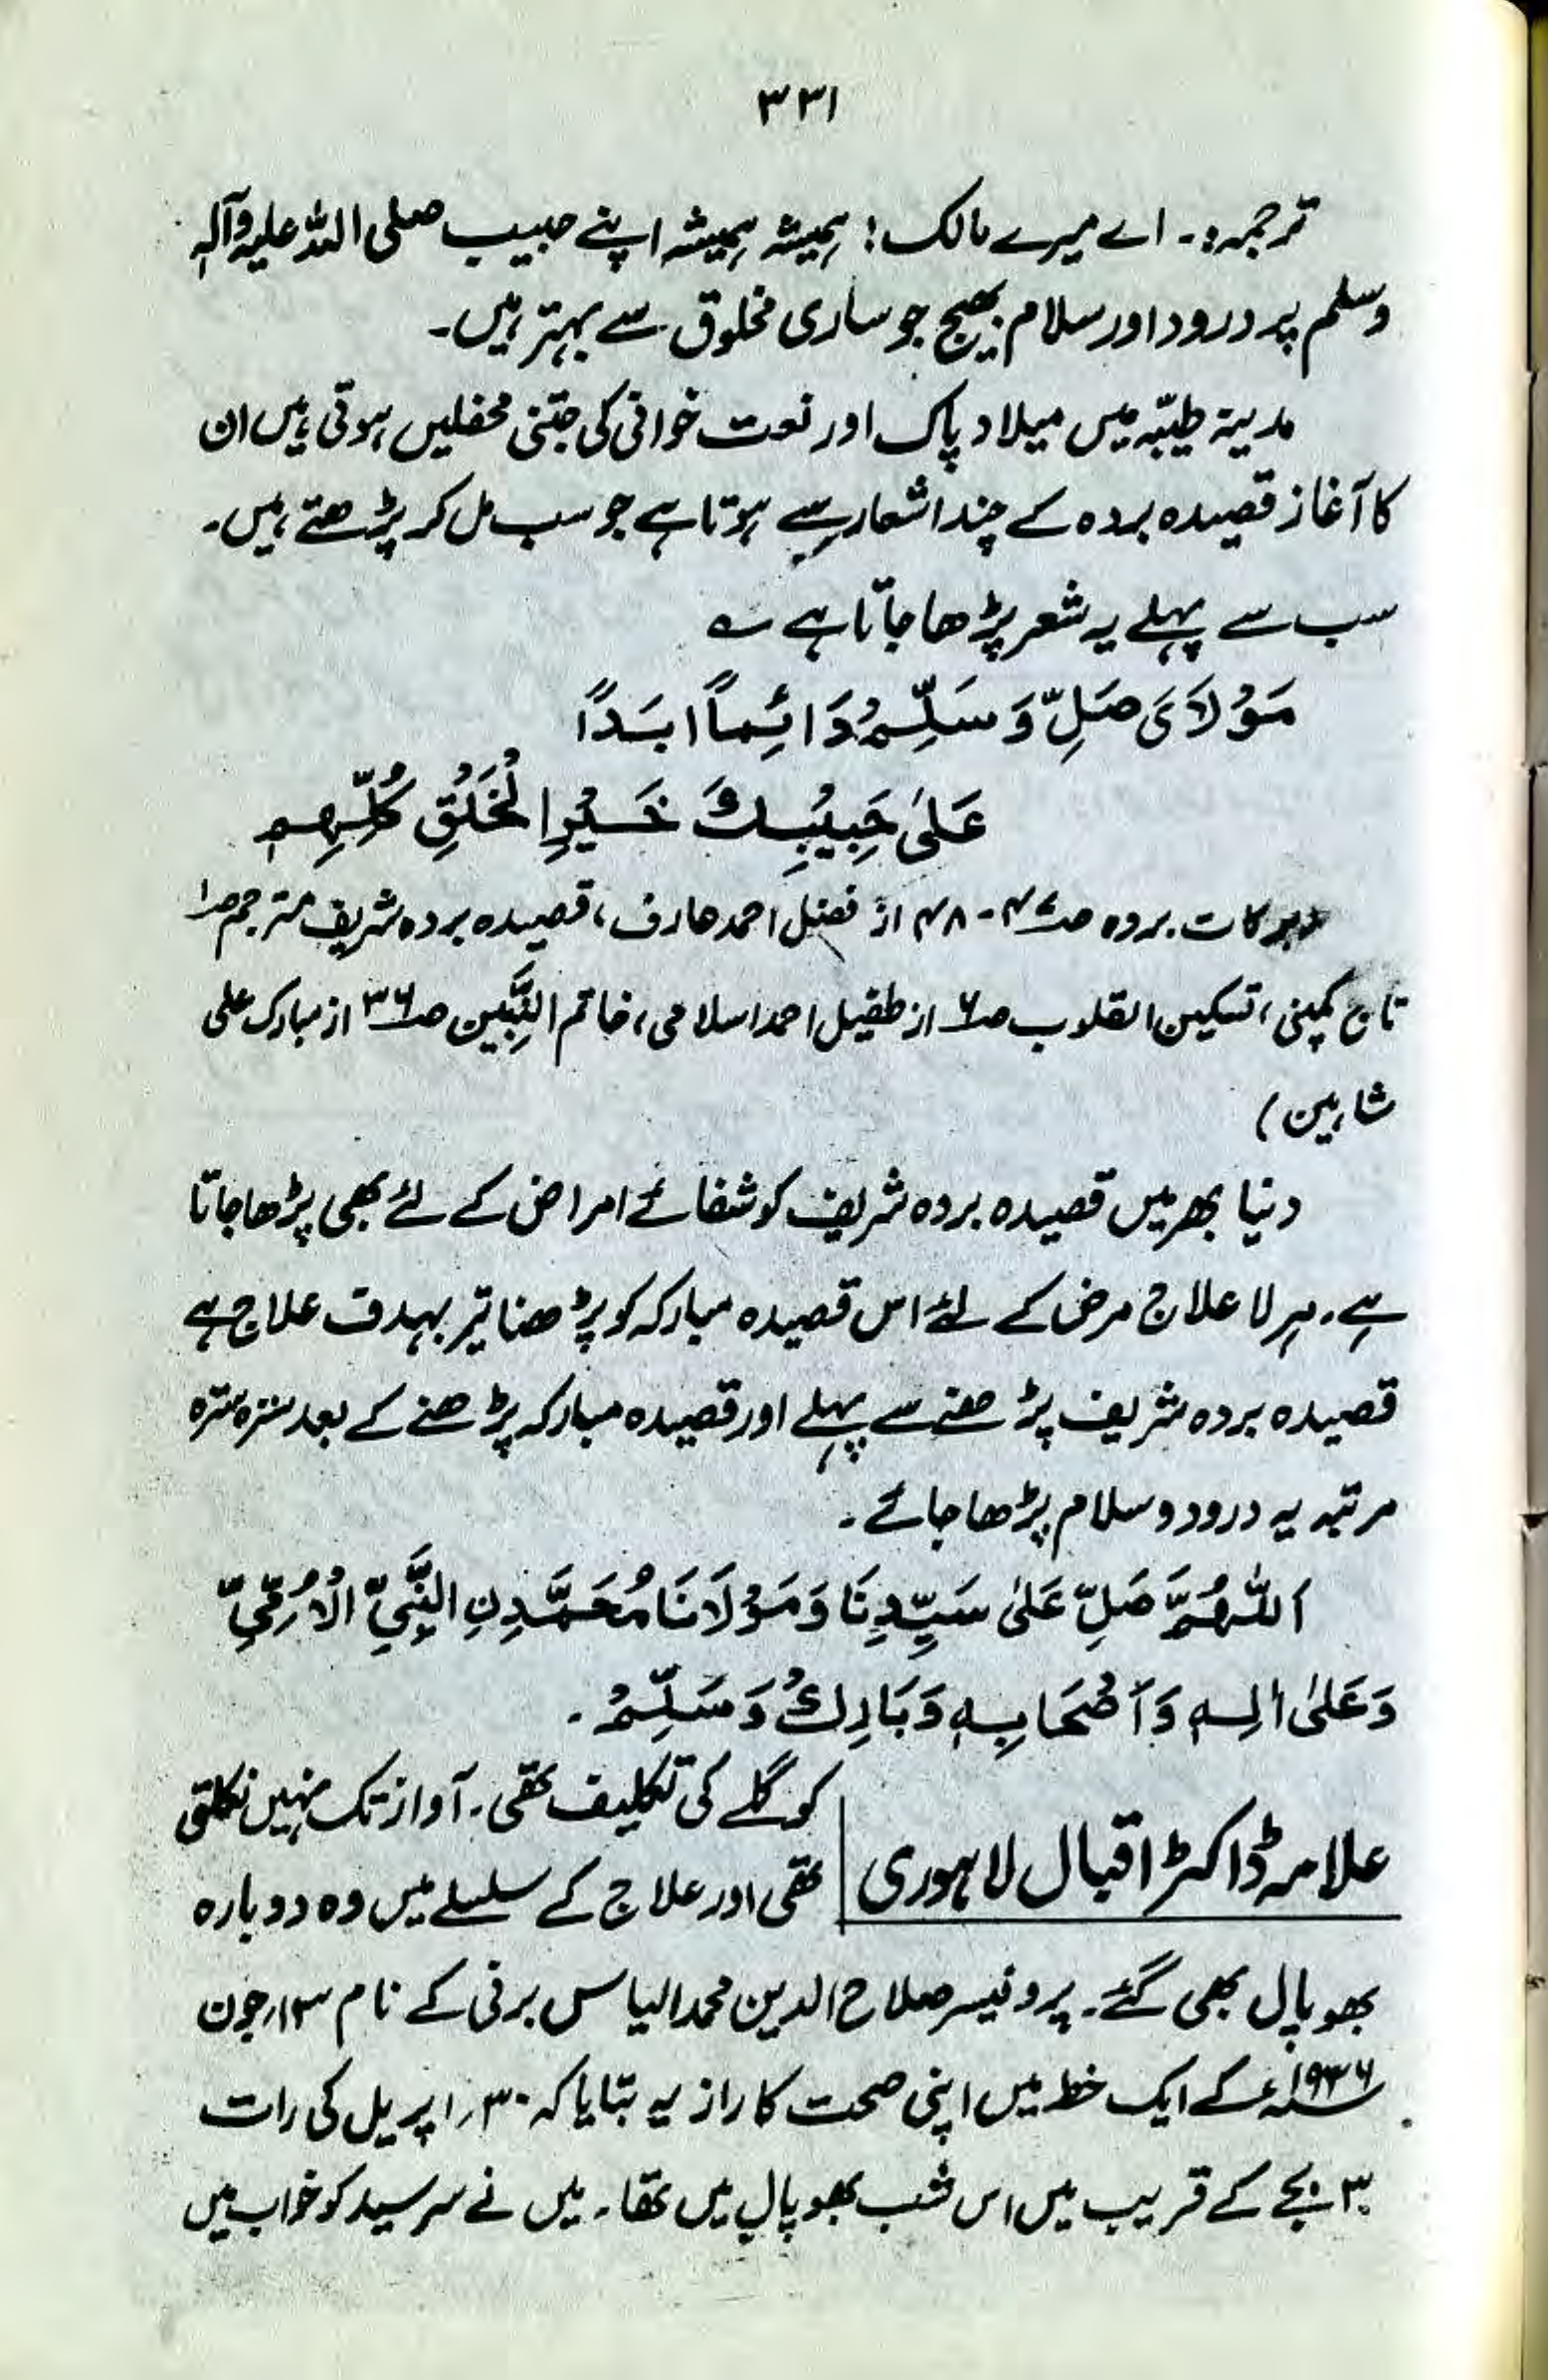 ۳۳۱
ترجمہ:۔ اے میرے مالک! ہمیشہ ہمیشہ اپنے حبیب صلی اللہ علیہ وآلہٖ
وسلم پر درود اور سلام بھیج جو ساری مخلوق سے بہتر ہیں۔
مدینۃ طیّبہ میں میلاد پاک اور نعت خوانی کی جتنی محفلیں ہوتی ہیں ان
کا آغاز قصیدہ بردہ کے چند اشعار سے ہوتا ہے جو سب مل کر پڑھتے ہیں۔
سب سے پہلے یہ شعر پڑھا جاتا ہے ؎
مَوْلَایَ صَلِّ وَ سَلِّمْ دَائِماً ابَدًا
عَلٰی حَبِیْبِكَ خَیْرِ الْخَلْقِ کُلِّهِم
(برکات بردہ صـ ۴۷-۴۸ از فضل احمد عارف، قصیدہ بردہ شریف مترجم صـ۱
تاج کمپنی، تسکین القلوب صـ۶ از طفیل احمد اسلامی، خاتم النبّیین صـ۳۶ از مبارک علی
شاہین)
دنیا بھر میں قصیدہ بردہ شریف کو شفائے امراض کے لئے بھی پڑھا جاتا
ہے۔ ہر لا علاج مرض کے لئے اس قصیدہ مبارکہ کو پڑھنا تیر بہدف علاج ہے
قصیدہ بردہ شریف پڑھنے سے پہلے اور قصیدہ مبارکہ پڑھنے کے بعد سترہ سترہ
مرتبہ یہ درود و سلام پڑھا جائے۔
اَللّٰهُمَّ صَلِّ عَلٰی سَیِّدِنَا وَمَوْلَانَا مُحَمَّدِنِ النَّبِیِّ الْاُمِّیِّ
وَعَلٰی اٰلِهٖ وَاَصْحَابِهٖ وَبَارِكْ وَسَلِّمْ۔
علامہ ڈاکٹر اقبال لاہوری
کو گلے کی تکلیف تھی۔ آواز تک نہیں نکلتی
تھی اور علاج کے سلسلے میں وہ دوبارہ
بھوپال بھی گئے۔ پروفیسر صلاح الدین محمد الیاس برنی کے نام ۱۳؍جون
۱۹۳۶ء کے ایک خط میں اپنی صحت کا راز یہ بتایا کہ ۳۰؍اپریل کی رات
۳ بجے کے قریب میں اس شب بھوپال میں تھا۔ میں نے سرسید کو خواب میں